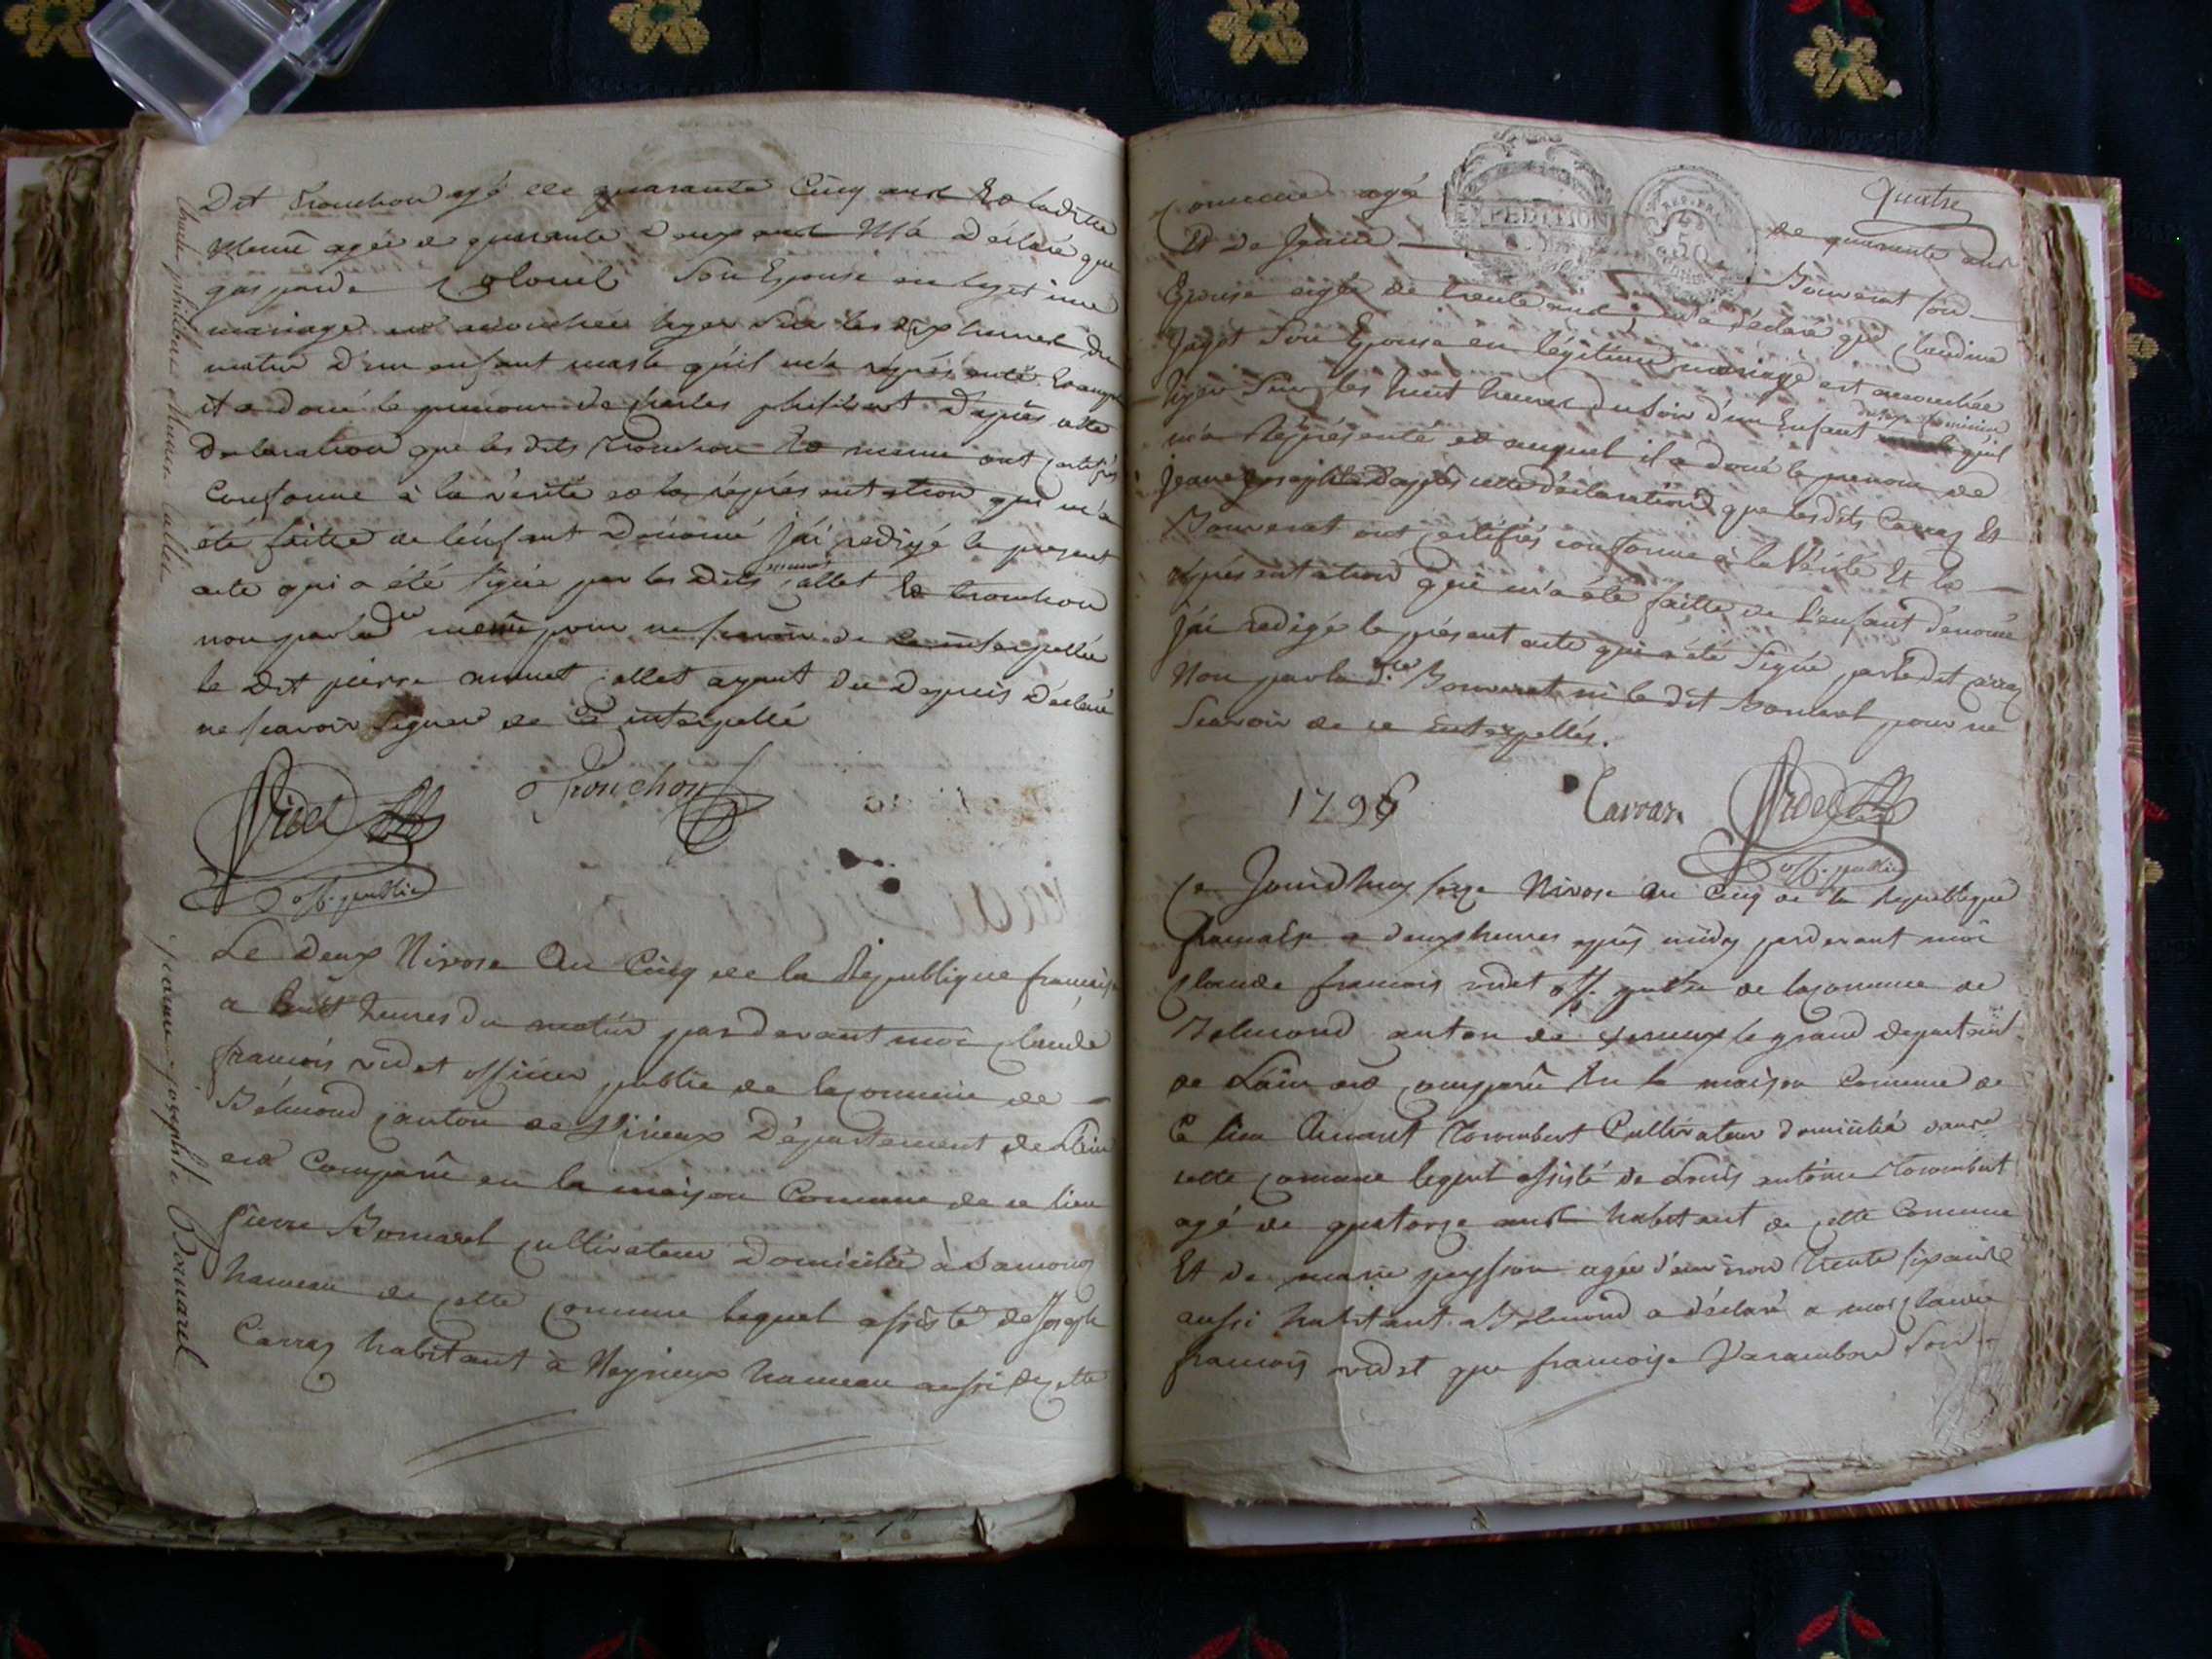 Dit Trouchon agé de quarante Cinq ans Et la ditte
agée de quarante Deux ans M'a Déclaré que
gasparde Colomel Son Epouse en legitime
mariage est acouchée hyer Sur les dix heures Du
matin D'un enfant masle qu'il m'a représenté Et auquel
il a doné le prenom de philibert D'après cette
Declaration que les dits Trouchon Et ont certifiés
Conforme à la vérité et la représentation qui m'a
été faitte de l'enfant Dénomé j'ai redigé le present
acte qui a été signé par les Dits Et Trouchon
non par la d.te pour ne scavoir de ce interpellée
le Dit pierre allet ayant Du Depuis Déclaré
ne scavoir Signer de Ce interpellé
Videt Trouchon
off. public
Claude philibert allet
Le Deux Nivose An Cinq de la République francaise
a huit heures du matin pardevant moi Claude
francois videt officier public de la comune de
Bélmond canton de Virieux Département de L'ain
est Comparu en la maison Comune de ce lieu
Pierre Bonarel cultivateur Domicilié à Samonod
hameau de cette comune lequel assisté de Joseph
Carraz habitant à Neyrieux hameau aussi de cette
jeanne josephte Bonarel
Quatre
EXPEDITION
50
Comune agé de quarante ans
Et de Bouverat Son
Epouse agée de trente ans, m'a déclaré que Claudine
Jagot Son Epouse en légitime mariage est acouchée
hyer Sur les huit heures du Soir d'un Enfant du sexe feminin qu'il
m'a Représenté et auquel il a doné le prenom de
jeane josephte D'après cette déclaration que les dits Carraz Et
Bouverat ont certifiés conforme à la Vérité Et la
représentation qui m'a été faitte de l'enfant dénomé
j'ai redigé le présent acte qui a été Signé par le dit Carraz
Non par la d.te Bouverat ni le dit Bonarel pour ne
Scavoir de ce interpellés.
1796 Carraz Videt
off. public
Ce Jourdhuy seize Nivose An Cinq de la Republique
francaise a deux heures après midy pardevant moi
Claude francois videt off. public de la comune de
Belmond canton de le grand departemt
de Lain est comparu En la maison Comune de
Ce lieu Morombert Cultivateur domicilié dans
cette comune lequel assisté de Louis antoine Morombert
agé de quatorze ans habitant de cette Comune
Et de marie peysson agée d'environ trente six ans
aussi habitant a Belmond a déclaré a moi Claude
francois videt que francoise Varambon Son